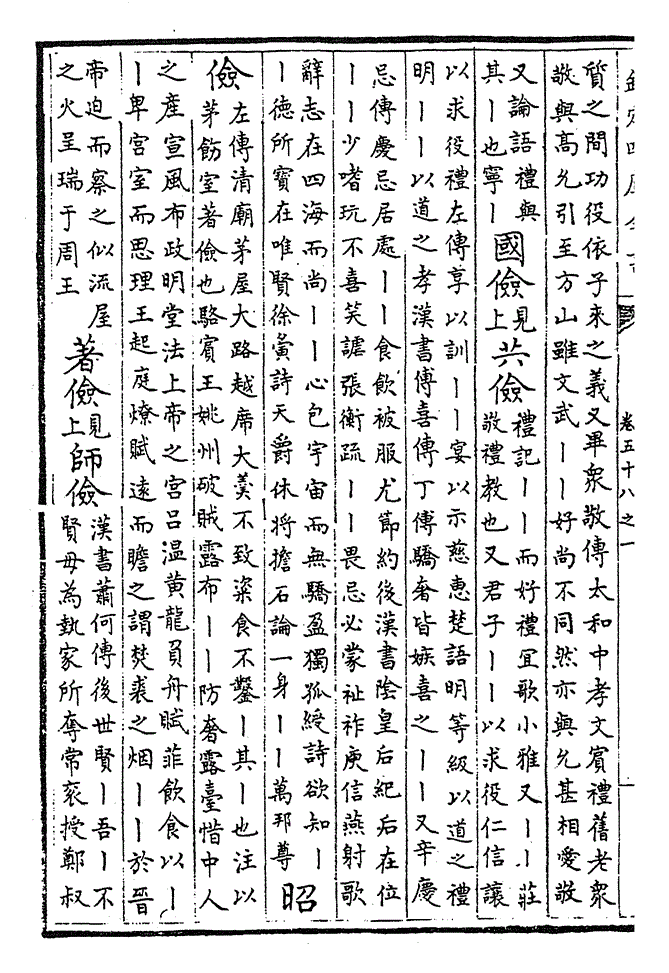 卷五十八之一
質之間功役依子來之義又畢衆敬傳太和中孝文賓禮舊老衆
敬與高允引至方山雖文武丨丨好尚不同然亦與允甚相愛敬
又論語禮與
其丨也寧丨
國儉
見上
共儉
禮記丨丨而好禮宜歌小雅又丨丨莊
敬禮教也又君子丨丨以求役仁信讓
以求役禮左傳享以訓丨丨宴以示慈惠楚語明等級以道之禮
明丨丨以道之孝漢書傅喜傳丁傅驕奢皆嫉喜之丨丨又辛慶
忌傳慶忌居處丨丨食飲被服尤節約後漢書陰皇后紀后在位
丨丨少嗜玩不喜笑謔張衡疏丨丨畏忌必蒙祉祚庾信燕射歌
辭志在四海而尚丨丨心包宇宙而無驕盈獨孤綬詩欲知丨
丨德所寶在唯賢徐夤詩天爵休將擔石論一身丨丨萬邦尊
昭
儉
左傳清廟茅屋大路越席大羮不致粢食不鑿丨其丨也注以
茅飭室著儉也駱賓王姚州破賊露布丨丨防奢露臺惜中人
之產宣風布政明堂法上帝之宮呂温黄龍負舟賦菲飲食以丨
丨卑宮室而思理王起庭燎賦遠而瞻之謂焚裘之烟丨丨於晉
帝迫而察之似流屋
之火呈瑞于周王
著儉
見上
師儉
漢書蕭何傳後世賢丨吾丨不
賢毋為埶家所奪常衮授鄭叔